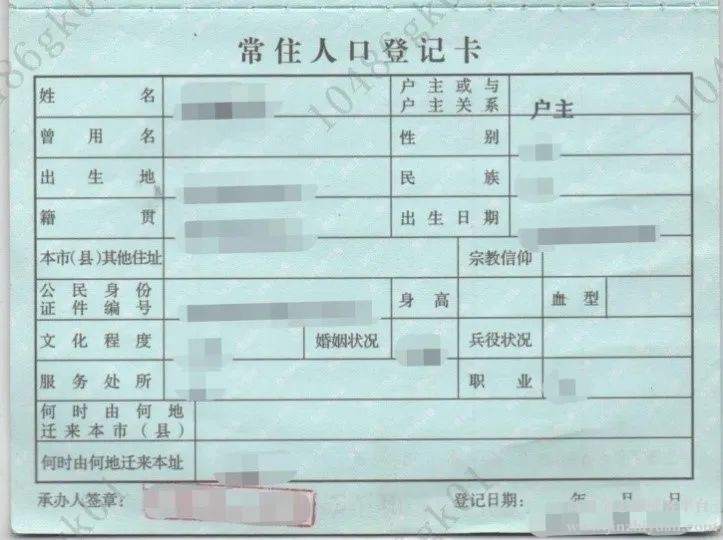 常住人口登记卡
姓名 户主或与户主关系 户主
曾用名 性别
出生地 民族
籍贯 出生日期
本市(县)其他住址 宗教信仰
公民身份证件编号 身高 血型
文化程度 婚姻状况 兵役状况
服务处所 职业
何时由何地迁来本市(县)
何时由何地迁来本址
承办人签章: 登记日期: 年 月 日
10486gk01